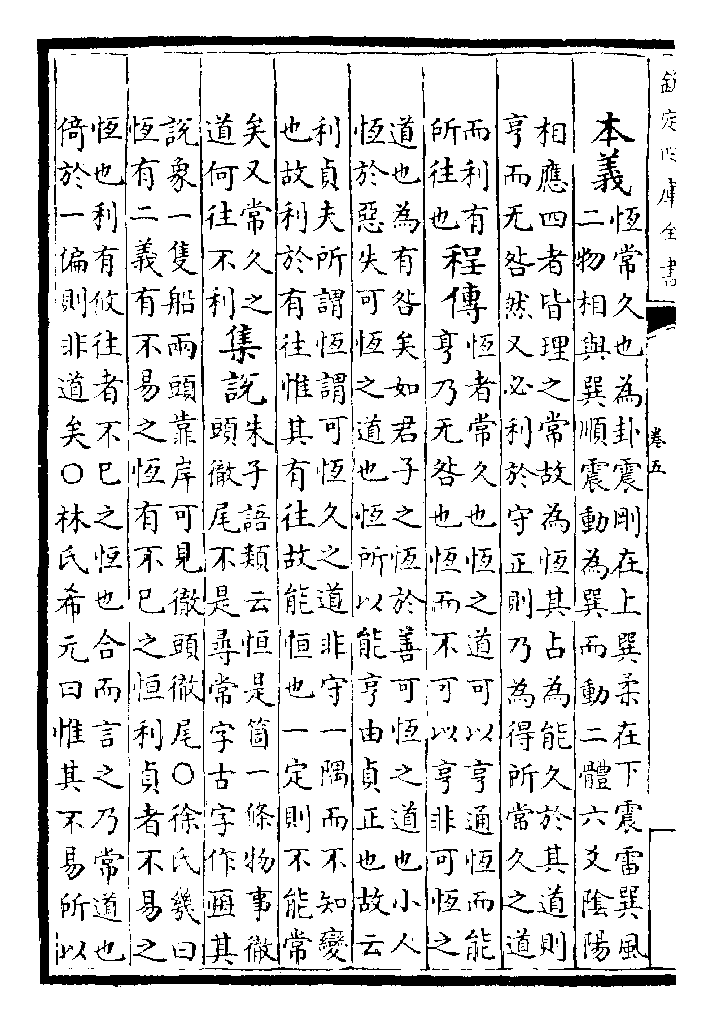 欽定四庫全書
卷五
本義
恆常久也為卦震剛在上巽柔在下震雷巽風
二物相與巽順震動為巽而動二體六爻陰陽
相應四者皆理之常故為恆其占為能久於其道則
亨而无咎然又必利於守正則乃為得所常久之道
而利有
所往也
程傳
恆者常久也恆之道可以亨通恆而能
亨乃无咎也恆而不可以亨非可恆之
道也為有咎矣如君子之恆於善可恆之道也小人
恆於惡失可恆之道也恆所以能亨由貞正也故云
利貞夫所謂恆謂可恆久之道非守一隅而不知變
也故利於有往惟其有往故能恒也一定則不能常
矣又常久之
道何往不利
集說
朱子語類云恒是箇一條物事徹
頭徹尾不是尋常字古字作其
說象一隻船兩頭靠岸可見徹頭徹尾○徐氏幾曰
恆有二義有不易之恆有不已之恒利貞者不易之
恆也利有攸往者不已之恆也合而言之乃常道也
倚於一偏則非道矣○林氏希元曰惟其不易所以